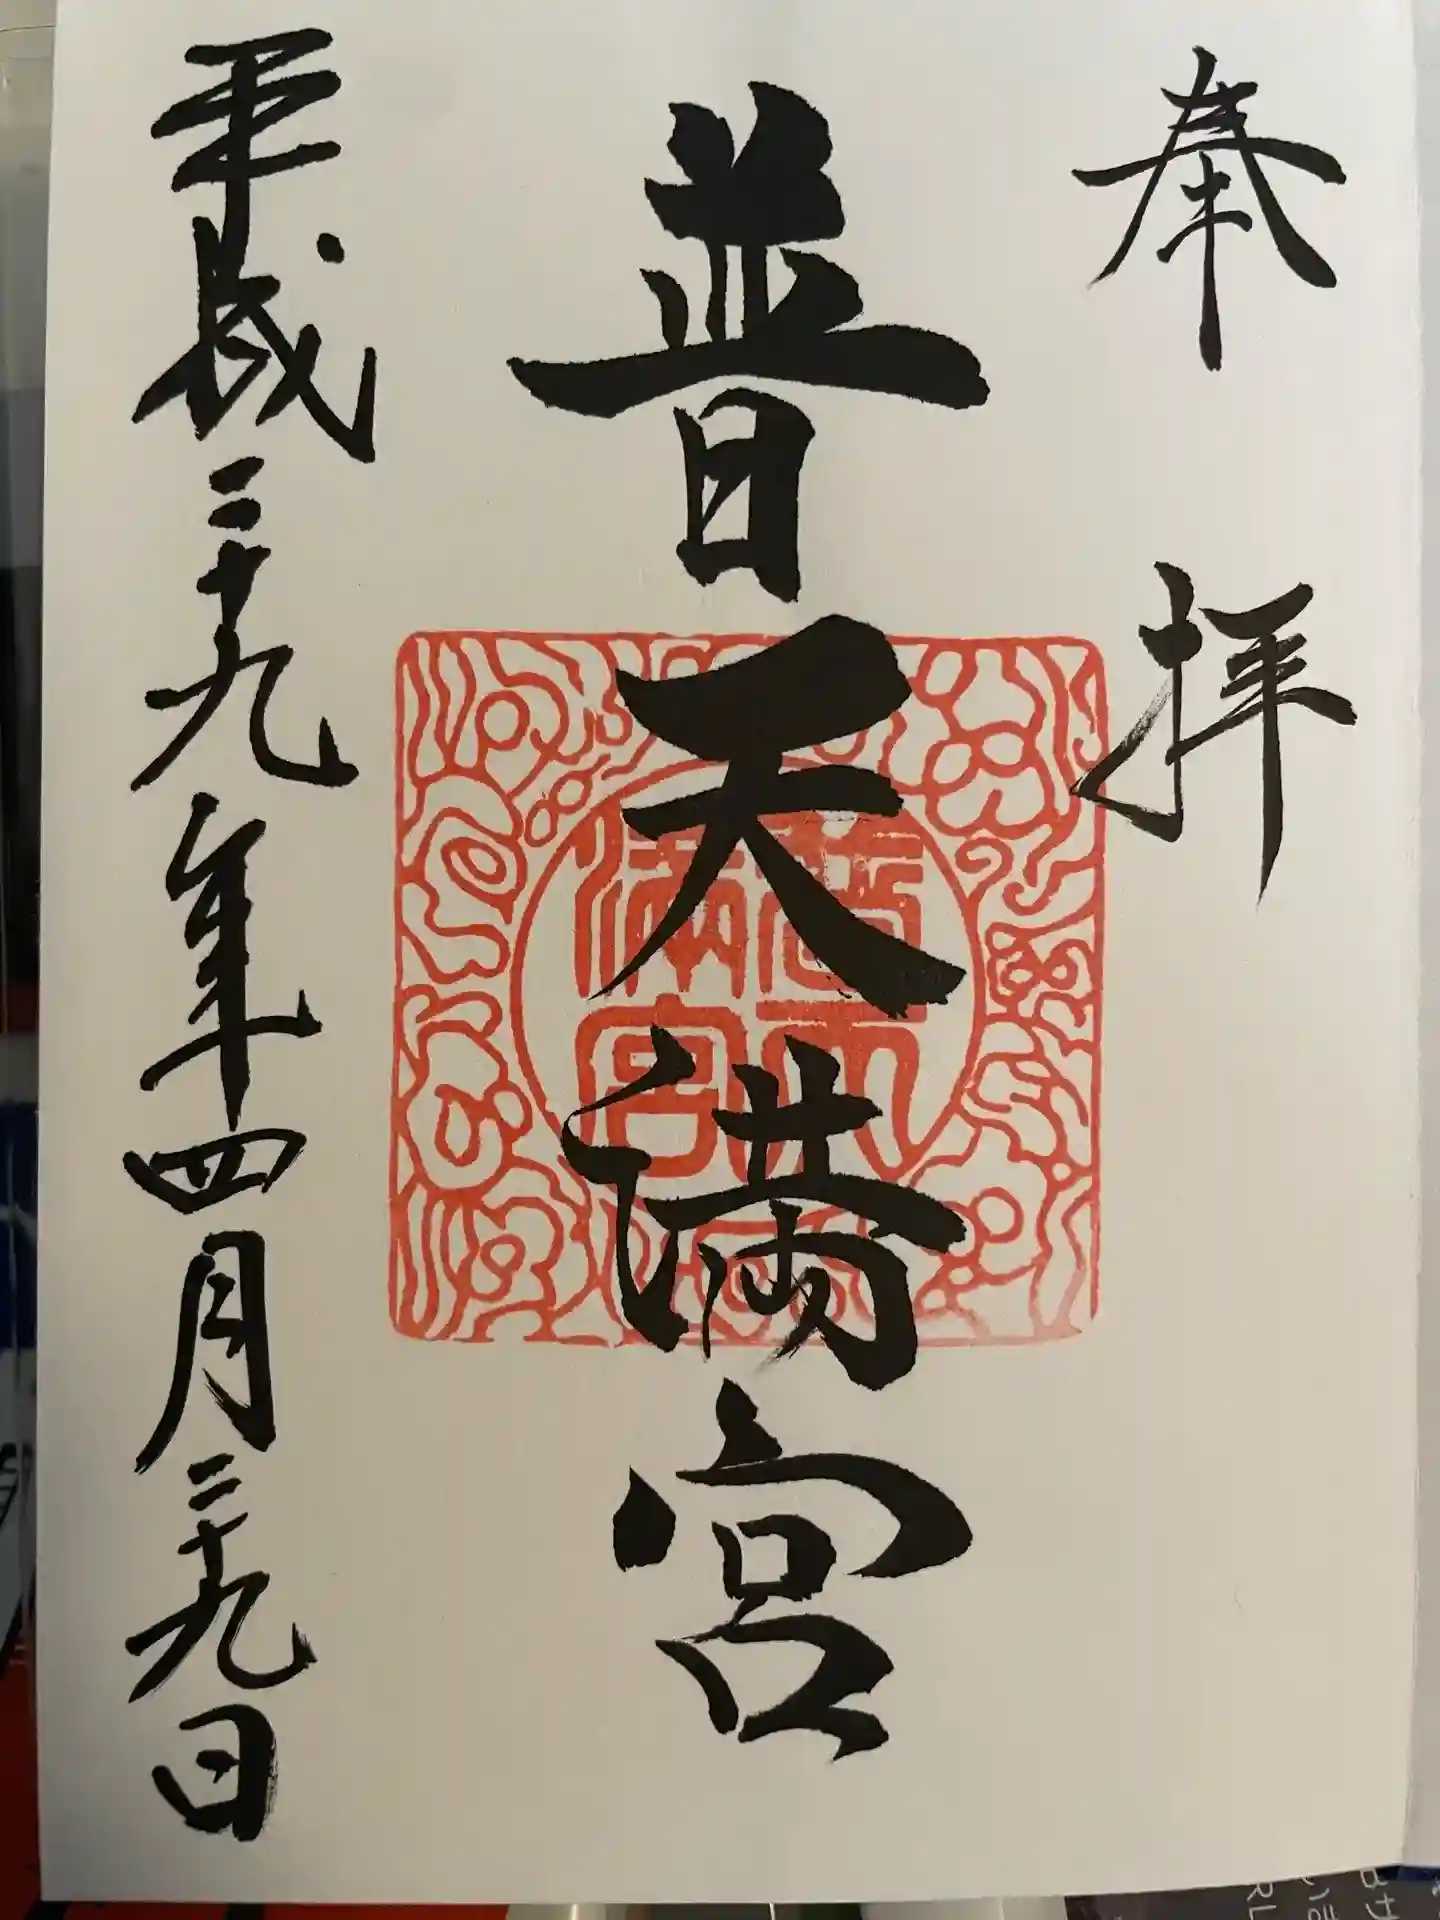 奉拝
普天満宮
平成二十九年四月二十九日
普天
満宮